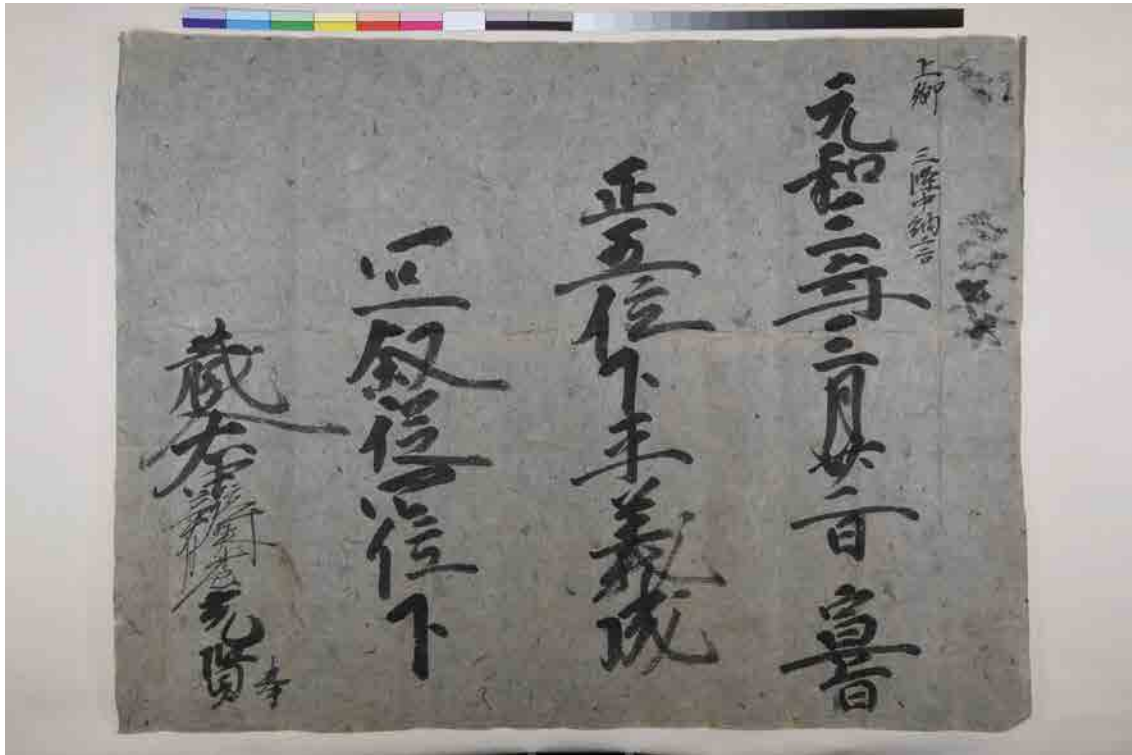 上卿 三條中納言
元和二年三月廿二日 宣旨
正五位下平義成
宜叙從四位下
蔵人 光賢奉